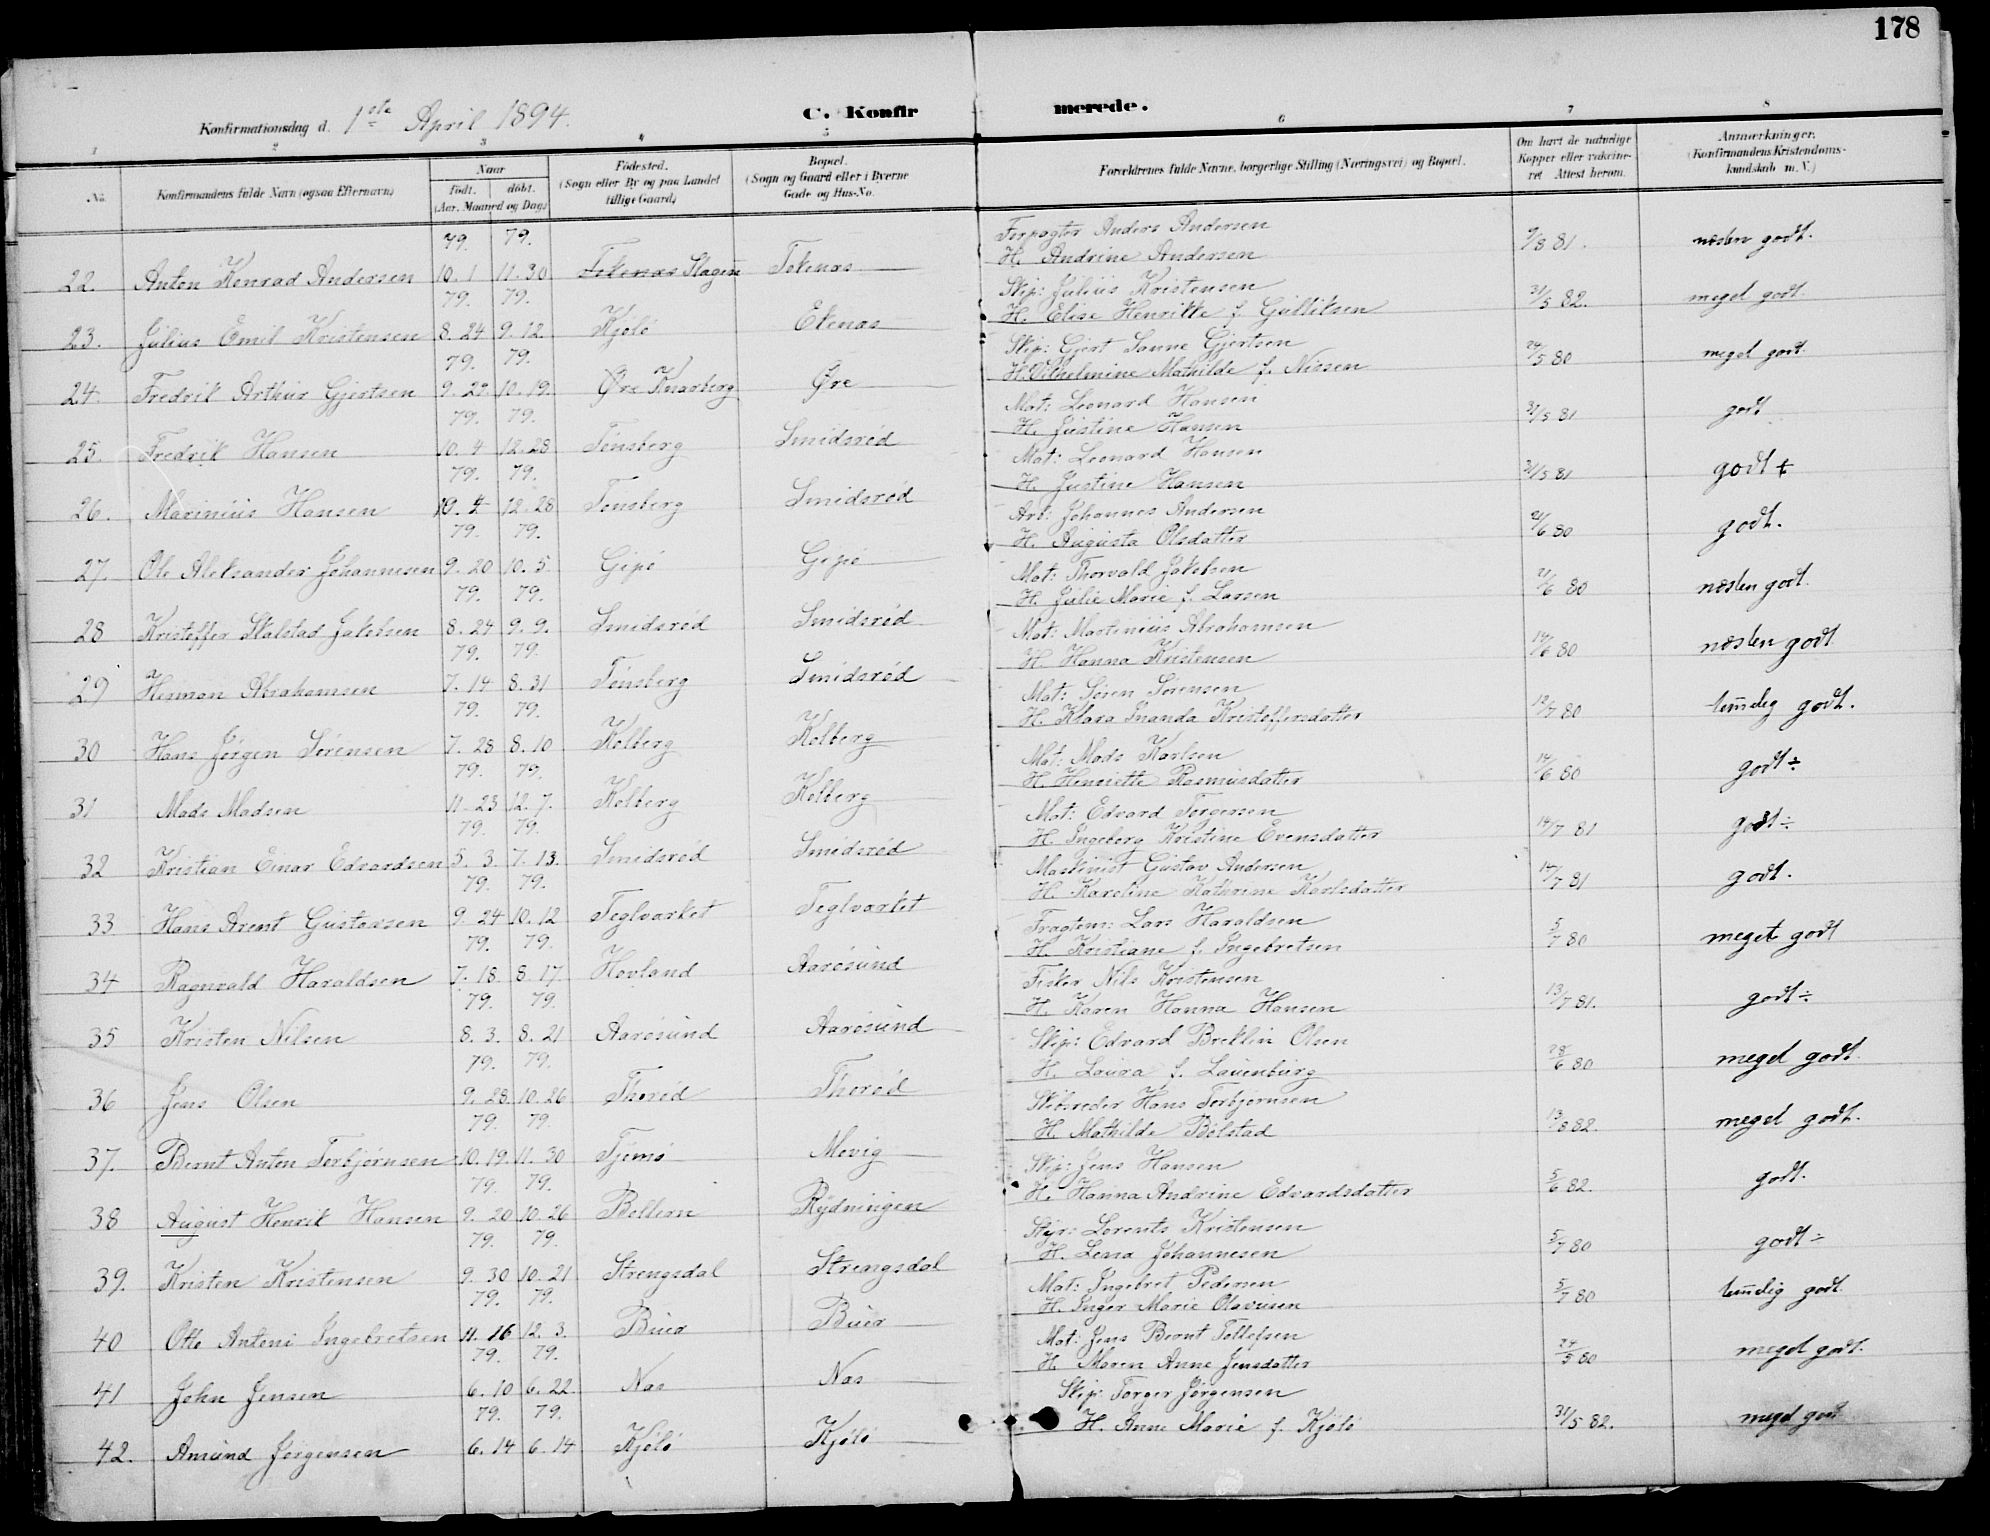 178
Konfirmationsdag d. 1ste April 1894.
C. Konfirmerede.
1 2 3 4 5 6 7 8
No. Konfirmandens fulde Navn (ogsaa Efternavn) Naar født. døbt. (Aar, Maaned og Dag) Fødested. (Sogn eller By og paa Landet tillige Gaard) Bopæl. (Sogn og Gaard eller i Byerne Gade og Hus-No. Forældrenes fulde Navne, borgerlige Stilling (Næringsvei) og Bopæl. Om havt de naturlige Kopper eller vakcineret. Attest herom. Anmærkninger. (Konfirmandens Kristendomskundskab m. V.)
79. 79. Forpagter Anders Andersen
22. Anton Konrad Andersen 10. 1 11. 30 Tekenas Slagen Tekenas H. Andrine Andersen 9/8 81. næsten godt.
79. 79. Skip: Julius Kristensen
23. Julius Emil Kristensen 8. 24 9. 12. Kjølø Ekenas H. Elise Henrikke f. Gulliksen 31/5 82. meget godt.
79. 79. Skip: Gjert Sanne Gjertsen
24. Fredrik Arthur Gjertsen 9. 29 10. 19. Øre Knarberg Øre H. Vilhelmine Mathilde f. Nissen 24/5 80 meget godt.
79. 79. Mat: Leonard Hansen
25. Fredrik Hansen 10. 4 12. 28 Tønsberg Smidsrød H. Justine Hansen 31/5 81 godt
79. 79. Mat: Leonard Hansen
26. Marinius Hansen 10. 4 12. 28 Tønsberg Smidsrød H. Justine Hansen 31/5 81 godt +
79. 79. Arb: Johannes Andersen
27. Ole Aleksander Johannesen 9. 20 10. 5 Gipø Gipø H. Augusta Olsdatter 21/6 80 godt.
79. 79. Mat: Thorvald Jakobsen
28 Kristoffer Skalstad Jakobsen 8. 24 9. 9. Smidsrød Smidsrød H. Julie Marie f. Larsen 21/6 80 næsten godt.
79. 79. Mat: Martinius Abrahamsen
29 Herman Abrahamsen 7. 14 8. 31 Tønsberg Smidsrød H. Hanna Kristensen 14/6 80 næsten godt
79. 79. Mat: Søren Sørensen
30 Hans Jørgen Sørensen 7. 28 8. 10 Kolberg Kolberg H. Klara Inanda Kristoffersdatter 12/7 80 temmelig godt.
79. 79. Mat: Mads Karlsen
31 Mads Madsen 11. 23 12. 7. Kolberg Kolberg H. Henriette Rasmusdatter 14/6 80 godt ÷
79. 79. Mat: Edvard Torgersen
32 Kristian Einar Edvardsen 5. 3. 7. 13. Smidsrød Smidsrød H. Ingeborg Kristine Evensdatter 14/7 81 godt ÷
79. 79. Maskinist Gustav Andersen
33 Hans Arent Gustavsen 9. 24 10. 12 Teglværket Teglværket H. Karoline Kathrine Karlsdatter 14/7 81 godt.
79. 79. Fragtem: Lars Haraldsen
34 Ragnvald Haraldsen 7. 18. 8. 17. Hovland Aarøsund H. Kristiane f. Ingebretsen 5/7 80 meget godt
79. 79. Fisker Nils Kristensen
35 Kristen Nilsen 8. 3. 8. 21 Aarøsund Aarøsund H. Karen Hanna Hansen 13/7 81. godt ÷
79. 79. Skip: Edvard Breklin Olsen
36 Jens Olsen 9. 28. 10. 26 Thorød Thorød H. Laura f. Lauenburg 28/6 80 meget godt.
79. 79. Skibsreder Hans Torbjørnsen
37. Bernt Anton Torbjørnsen 10. 19. 11. 30 Tjømø Movig H. Mathilde Bølstad 13/8 82. meget godt.
79. 79. Skip: Jens Hansen
38 August Henrik Hansen 9. 20 10. 26 Bollern Rydningen H. Hanna Andrine Edvardsdatter 5/6 82. godt.
79. 79. Styr: Lorents Kristensen
39. Kristen Kristensen 9. 30 10. 21 Strengsdal Strengsdal H. Lena Johannesen 5/7 80 godt ÷
79. 79. Mat: Ingebret Pedersen
40 Otto Antoni Ingebretsen 11. 16 12. 3. Buer Buer H. Inger Marie Olavusen 5/7 80 temmelig godt.
79. 79. Mat: Jens Bernt Tollefsen
41 John Jensen 6. 10 6. 22. Nas Nas H. Maren Anne Jensdatter 24/5 80 meget godt.
79. 79. Skip: Torger Jørgensen
42. Amund Jørgensen 6. 14 6. 14 Kjøló Kjøló H. Anne Marie f. Kjøló 31/5 82. meget godt